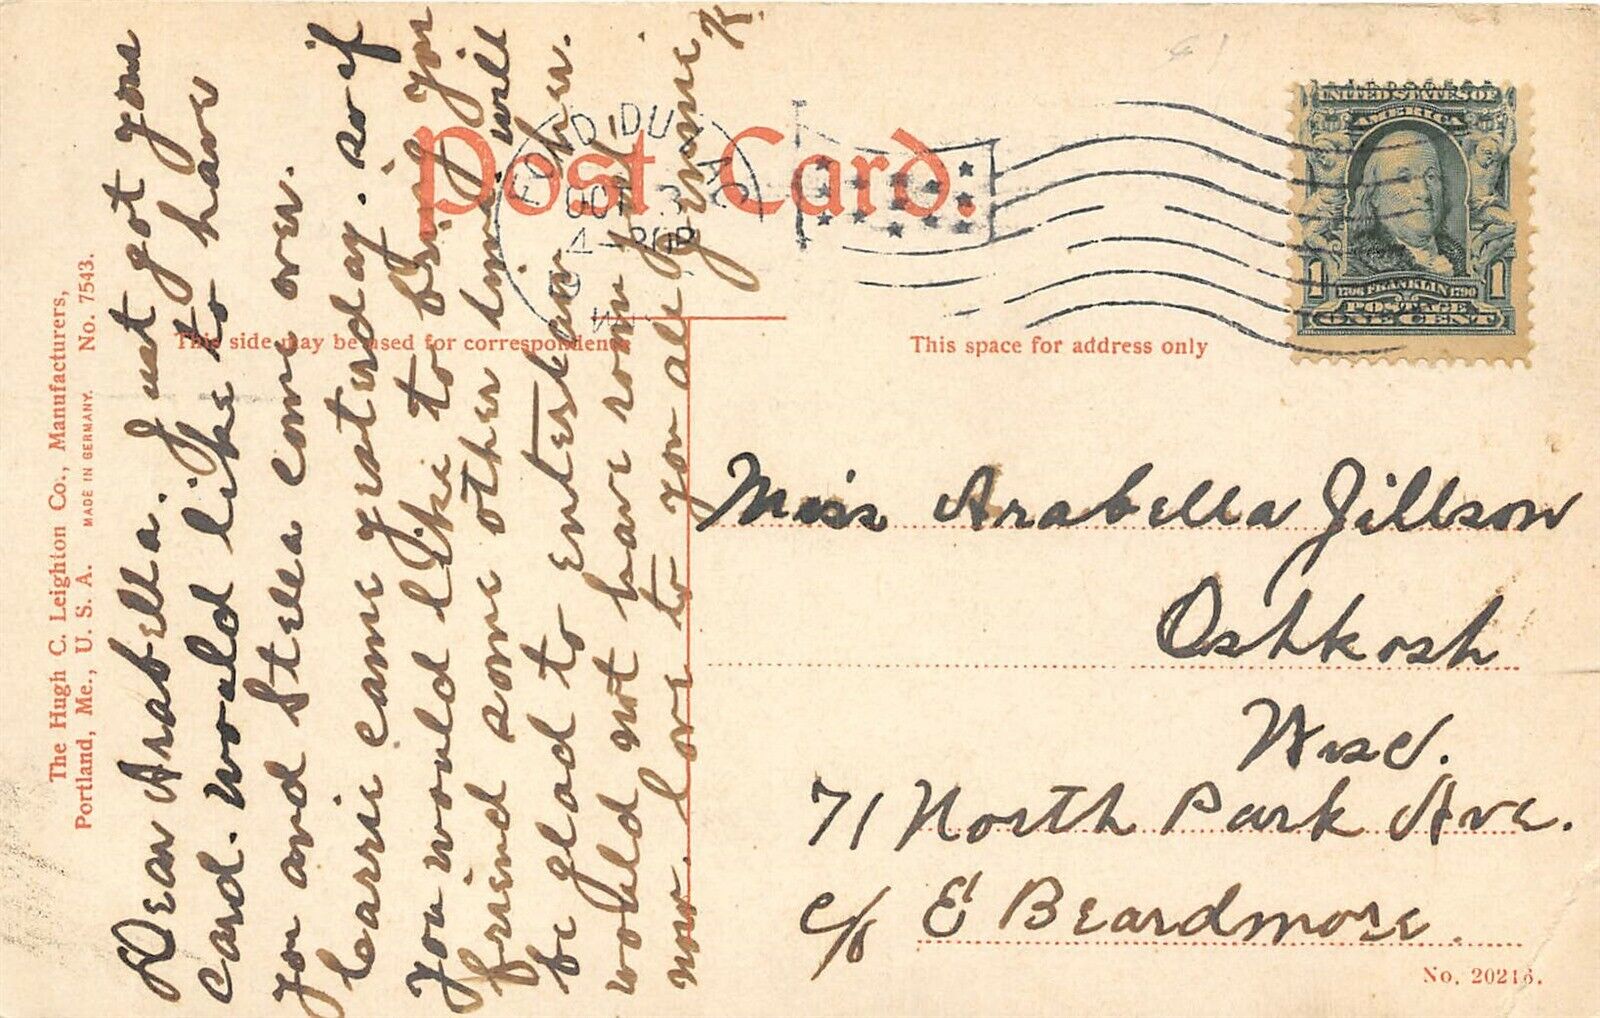 The Hugh C. Leighton Co., Manufacturers,
Portland, Me., U. S. A. MADE IN GERMANY. No. 7543.
Post Card.
This side may be used for correspondence
This space for address only
FOND DU LAC
OCT 3
4-30P
WIS.
UNITED STATES OF
AMERICA
1706 FRANKLIN 1790
1 POSTAGE 1
ONE CENT
Dear Arabella. Just got your
card. would like to have
you and Stella come over.
Carrie came yesterday. so if
you would like to bring your
friend some other time. will
be glad to entertain her.
would not have room just
now. love to you all
K.
Miss Arabella Jillson
Oshkosh
Wisc.
71 North Park Ave.
c/o E Beardmore.
No. 20216.